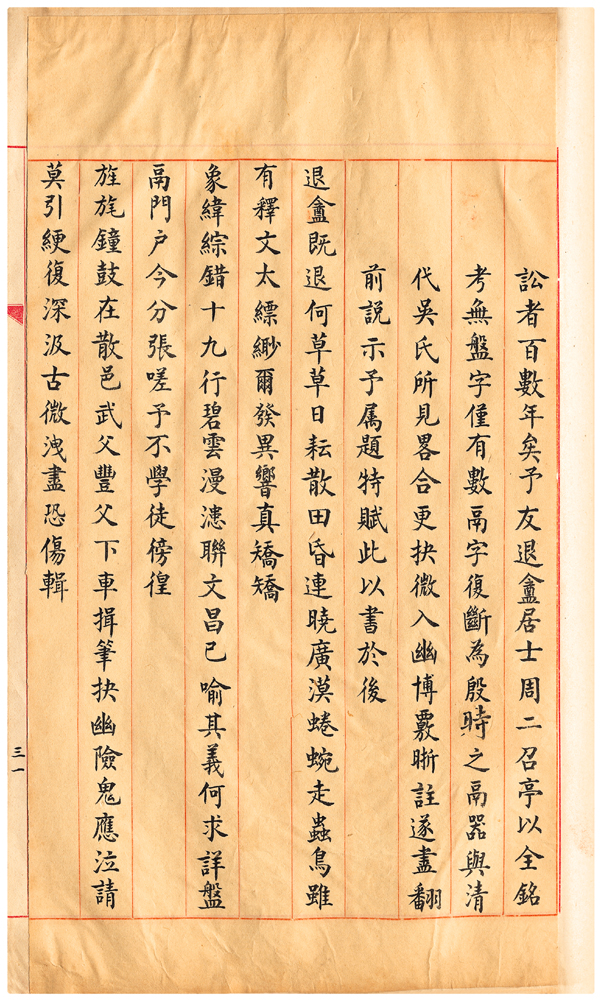 訟者百數年矣予友退盦居士周二召亭以全銘
考無盤字僅有數鬲字復斷為殷時之鬲器與清
代吳氏所見畧合更抉微入幽博覈晣註遂盡翻
前説示予属題特賦此以書於後
退盦既退何草草日耘散田昏連曉廣漠蜷蜿走蟲鳥雖
有釋文太縹緲爾發異響真矯矯
象緯綜錯十九行碧雲漫漶聯文昌已喻其義何求詳盤
鬲門戶今分張嗟予不學徒徬徨
旌旄鐘鼓在散邑武父豐父下車揖筆抉幽險鬼應泣請
莫引綆復深汲古微洩盡恐傷輯
三一